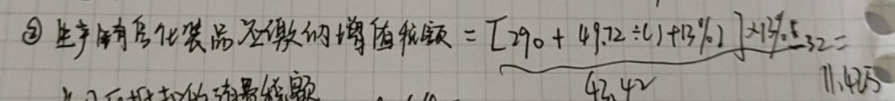 ② 生产销售化装品应缴的增值税额 = [290 + 49.72 ÷ (1+13%)] ×13% - 32 =
43.42
11.42万